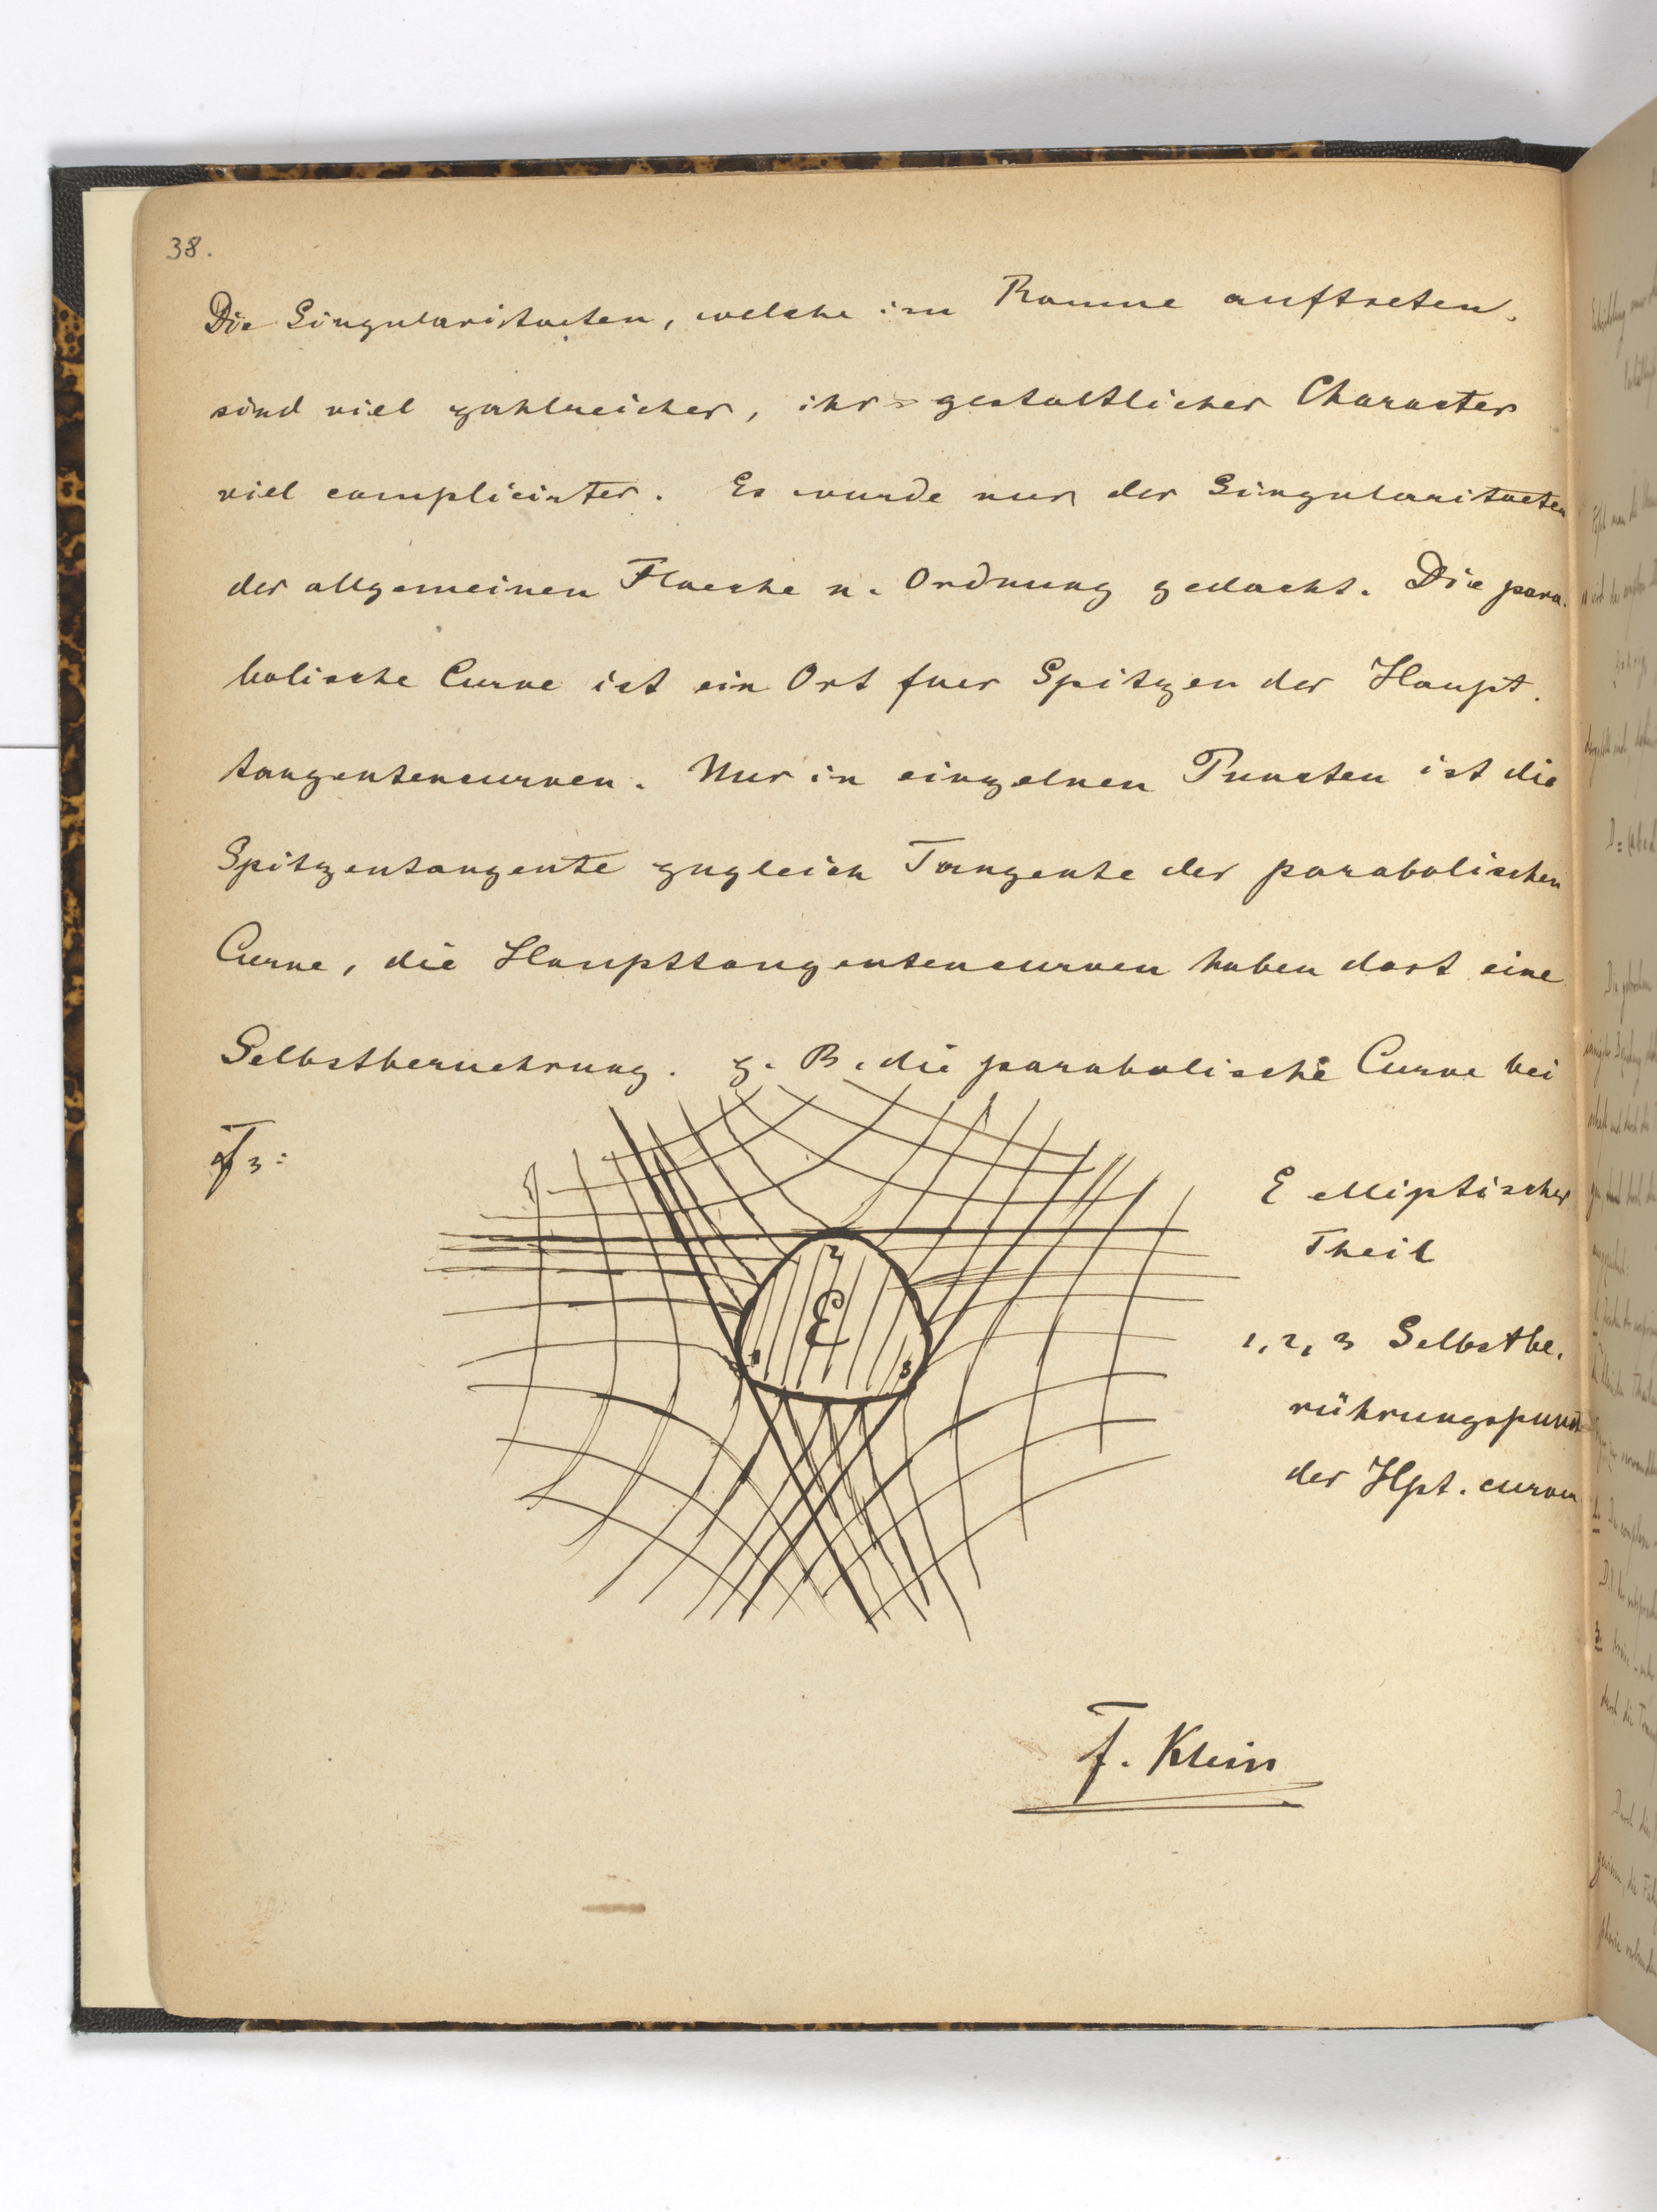 38.
Die Singularitaeten, welche im Raume auftreten,
sind viel zahlreicher, ihr gestaltlicher Character
viel complicirter. Es wurde nur der Singularitaeten
der allgemeinen Flaeche n. Ordnung gedacht. Die para-
bolische Curve ist ein Ort fuer Spitzen der Haupt-
tangentencurven. Nur in einzelnen Puncten ist die
Spitzentangente zugleich Tangente der parabolischen
Curve, die Haupttangentencurven haben dort eine
Selbstberuehrung. z. B. die parabolische Curve bei
F3:
E elliptischer
Theil
2
E
1
3
1, 2, 3 Selbstbe-
rührungspunct
der Hpt. curven
F. Klein